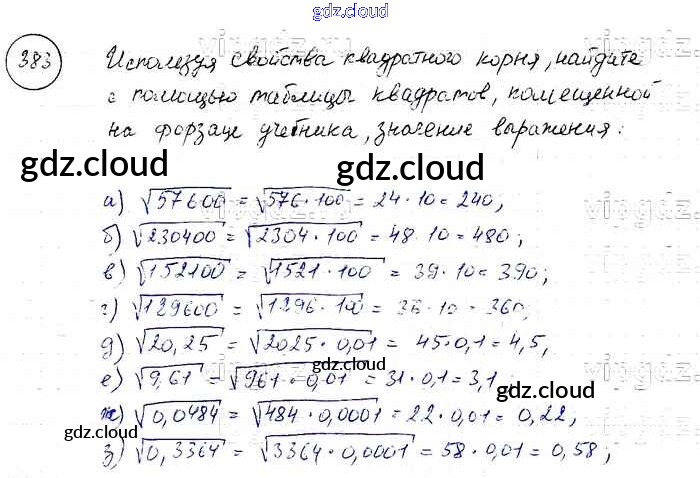 gdz.cloud
383 Используя свойства квадратного корня, найдите
с помощью таблицы квадратов, помещенной
на форзаце учебника, значение выражения:
gdz.cloud gdz.cloud
а) √57600 = √576·100 = 24·10 = 240;
б) √230400 = √2304·100 = 48·10 = 480;
в) √152100 = √1521·100 = 39·10 = 390;
г) √129600 = √1296·100 = 36·10 = 360;
д) √20,25 = √2025·0,01 = 45·0,1 = 4,5;
gdz.cloud
е) √9,61 = √961·0,01 = 31·0,1 = 3,1
gdz.cloud
ж) √0,0484 = √484·0,0001 = 22·0,01 = 0,22;
gdz.cloud
з) √0,3364 = √3364·0,0001 = 58·0,01 = 0,58;
gdz.cloud